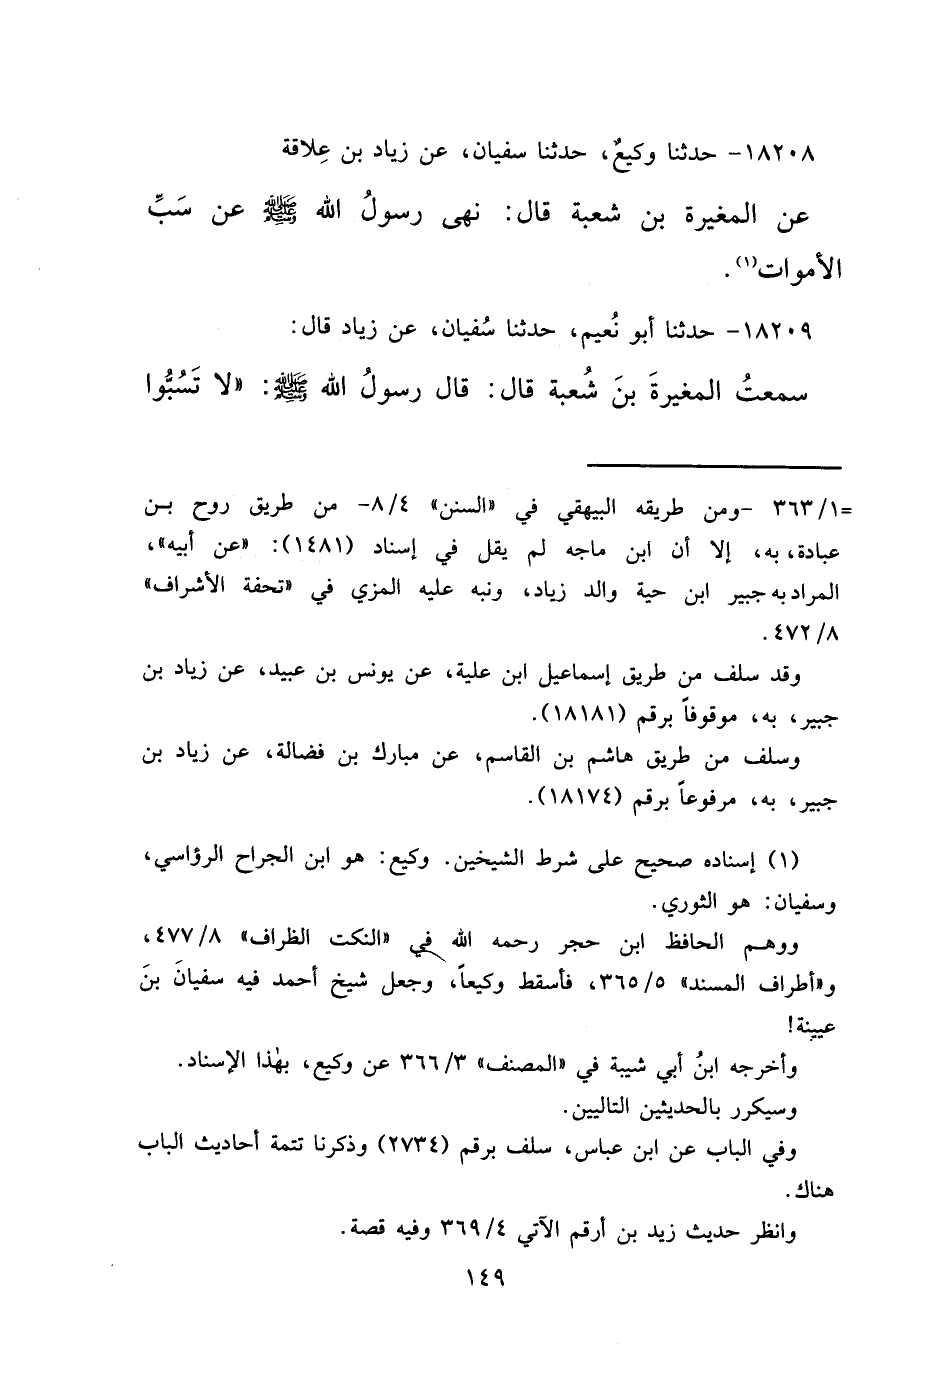 ١٨٢٠٨- حدثنا وكيعٌ، حدثنا سفيان، عن زياد بن عِلاقة
عن المغيرة بن شعبة قال: نهى رسولُ الله ﷺ عن سَبِّ
الأموات(١).
١٨٢٠٩- حدثنا أبو نُعيم، حدثنا سُفيان، عن زياد قال:
سمعتُ المغيرةَ بنَ شُعبة قال: قال رسولُ الله ﷺ: «لا تَسُبُّوا
=٣٦٣/١ -ومن طريقه البيهقي في «السنن» ٨/٤- من طريق روح بن
عبادة، به، إلا أن ابن ماجه لم يقل في إسناد (١٤٨١): «عن أبيه»،
المراد به جبير ابن حية والد زياد، ونبه عليه المزي في «تحفة الأشراف»
٤٧٢/٨.
وقد سلف من طريق إسماعيل ابن علية، عن يونس بن عبيد، عن زياد بن
جبير، به، موقوفاً برقم (١٨١٨١).
وسلف من طريق هاشم بن القاسم، عن مبارك بن فضالة، عن زياد بن
جبير، به، مرفوعاً برقم (١٨١٧٤).
(١) إسناده صحيح على شرط الشيخين. وكيع: هو ابن الجراح الرؤاسي،
وسفيان: هو الثوري.
ووهم الحافظ ابن حجر رحمه الله في «النكت الظراف» ٤٧٧/٨،
و«أطراف المسند» ٣٦٥/٥، فأسقط وكيعاً، وجعل شيخ أحمد فيه سفيانَ بنَ
عيينة!
وأخرجه ابنُ أبي شيبة في «المصنف» ٣٦٦/٣ عن وكيع، بهٰذا الإسناد.
وسيكرر بالحديثين التاليين.
وفي الباب عن ابن عباس، سلف برقم (٢٧٣٤) وذكرنا تتمة أحاديث الباب
هناك.
وانظر حديث زيد بن أرقم الآتي ٣٦٩/٤ وفيه قصة.
١٤٩